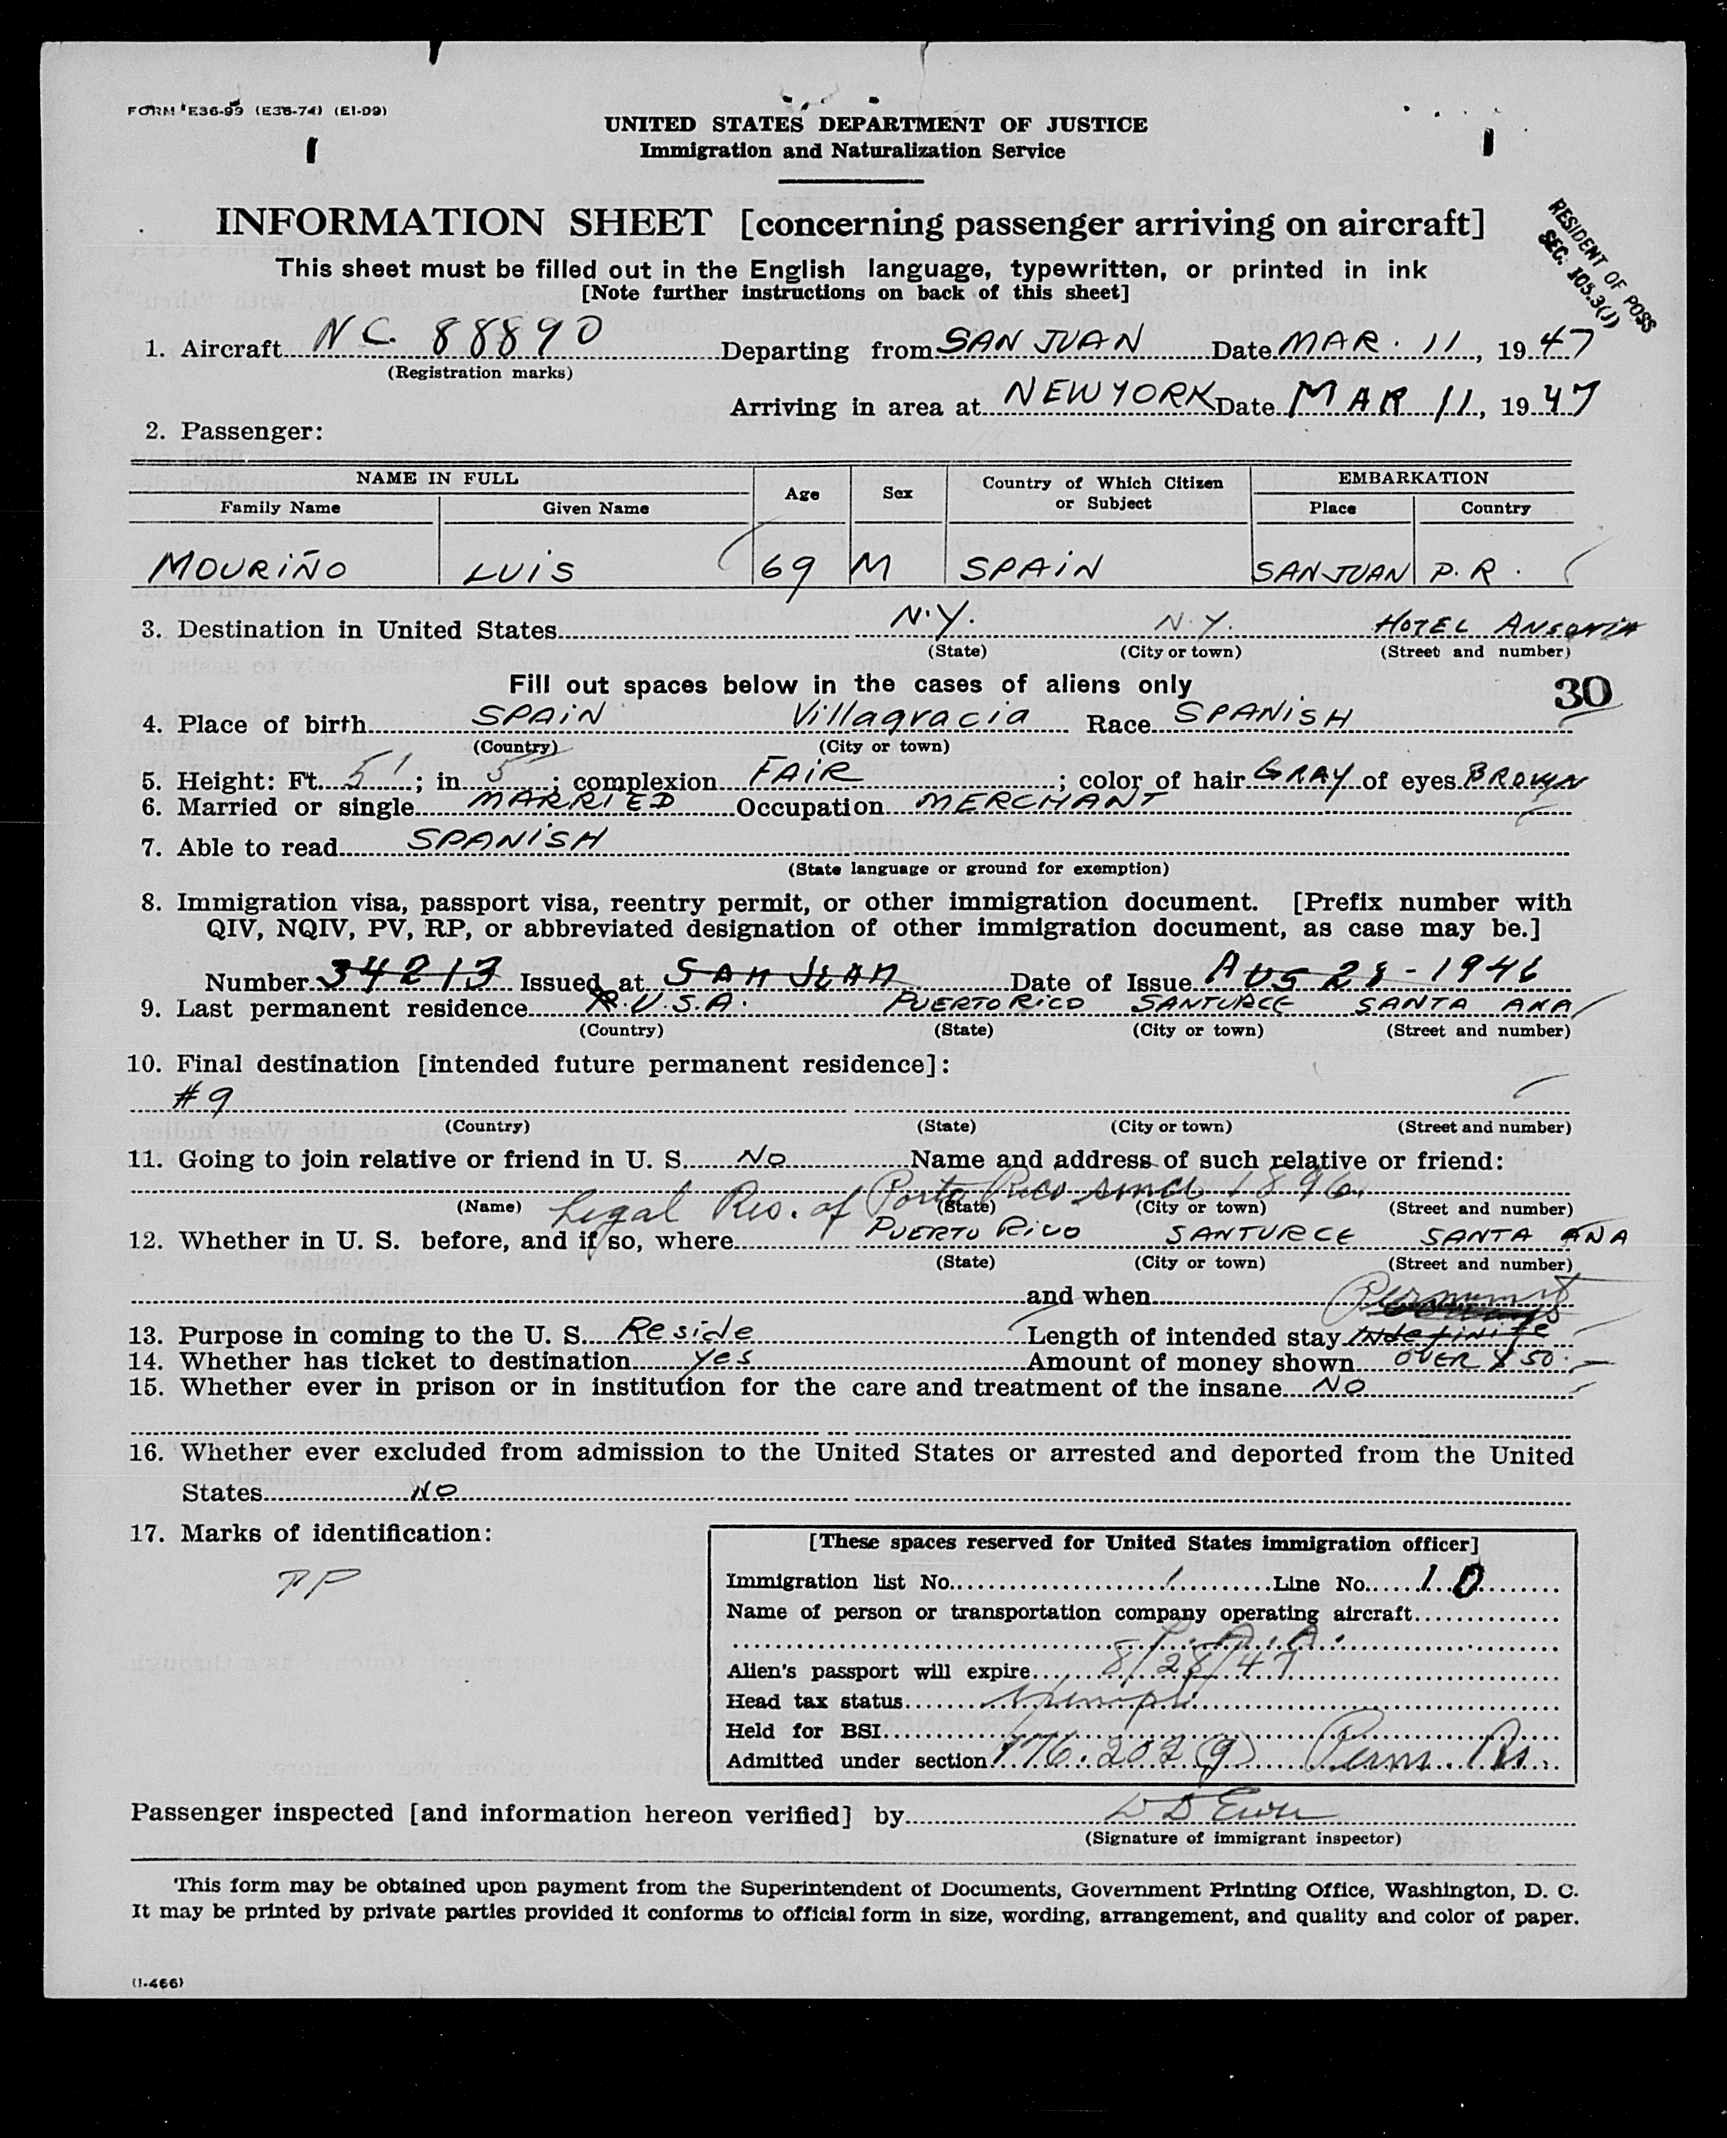 FORM E36-99 (E36-74) (E1-D9)
UNITED STATES DEPARTMENT OF JUSTICE
Immigration and Naturalization Service
INFORMATION SHEET [concerning passenger arriving on aircraft]
RESIDENT OF POSS
SEC. 105.3(J)
This sheet must be filled out in the English language, typewritten, or printed in ink
[Note further instructions on back of this sheet]
1. Aircraft NC 88890 Departing from SAN JUAN Date MAR. 11, 1947
(Registration marks)
Arriving in area at NEW YORK Date MAR 11, 1947
2. Passenger:
NAME IN FULL Age Sex Country of Which Citizen or Subject EMBARKATION
Family Name Given Name Place Country
MOURIÑO LUIS 69 M SPAIN SAN JUAN P.R.
3. Destination in United States N.Y. N.Y. HOTEL ANSONIA
(State) (City or town) (Street and number)
Fill out spaces below in the cases of aliens only 30
4. Place of birth SPAIN Villagracia Race SPANISH
(Country) (City or town)
5. Height: Ft. 5'; in 5"; complexion FAIR; color of hair GRAY of eyes BROWN
6. Married or single MARRIED Occupation MERCHANT
7. Able to read SPANISH
(State language or ground for exemption)
8. Immigration visa, passport visa, reentry permit, or other immigration document. [Prefix number with
QIV, NQIV, PV, RP, or abbreviated designation of other immigration document, as case may be.]
Number 34213 Issued at SAN JUAN Date of Issue AUG 28-1946
9. Last permanent residence U.S.A. PUERTO RICO SANTURCE SANTA ANA
(Country) (State) (City or town) (Street and number)
10. Final destination [intended future permanent residence]:
#9
(Country) (State) (City or town) (Street and number)
11. Going to join relative or friend in U. S. NO Name and address of such relative or friend:
Legal Res. of Porto Rico since 1896
(Name) (State) (City or town) (Street and number)
12. Whether in U. S. before, and if so, where PUERTO RICO SANTURCE SANTA ANA
(State) (City or town) (Street and number)
and when
13. Purpose in coming to the U. S. Reside Length of intended stay Indefinite
14. Whether has ticket to destination yes Amount of money shown OVER $50.
15. Whether ever in prison or in institution for the care and treatment of the insane NO
16. Whether ever excluded from admission to the United States or arrested and deported from the United
States NO
17. Marks of identification:
[These spaces reserved for United States immigration officer]
Immigration list No. 1 Line No. 10
Name of person or transportation company operating aircraft
P.A.A.
Alien's passport will expire 8/28/47
Head tax status
Held for BSI
Admitted under section 176.202(g) Perm. Rs.
Passenger inspected [and information hereon verified] by
(Signature of immigrant inspector)
This form may be obtained upon payment from the Superintendent of Documents, Government Printing Office, Washington, D. C.
It may be printed by private parties provided it conforms to official form in size, wording, arrangement, and quality and color of paper.
(I-466)